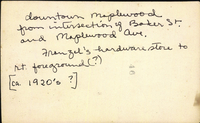 downtown Maplewood
from intersection of Baker St.
and Maplewood Ave.
Frenzel's hardware store to
rt. foreground(?)
[ca. 1920's ?]